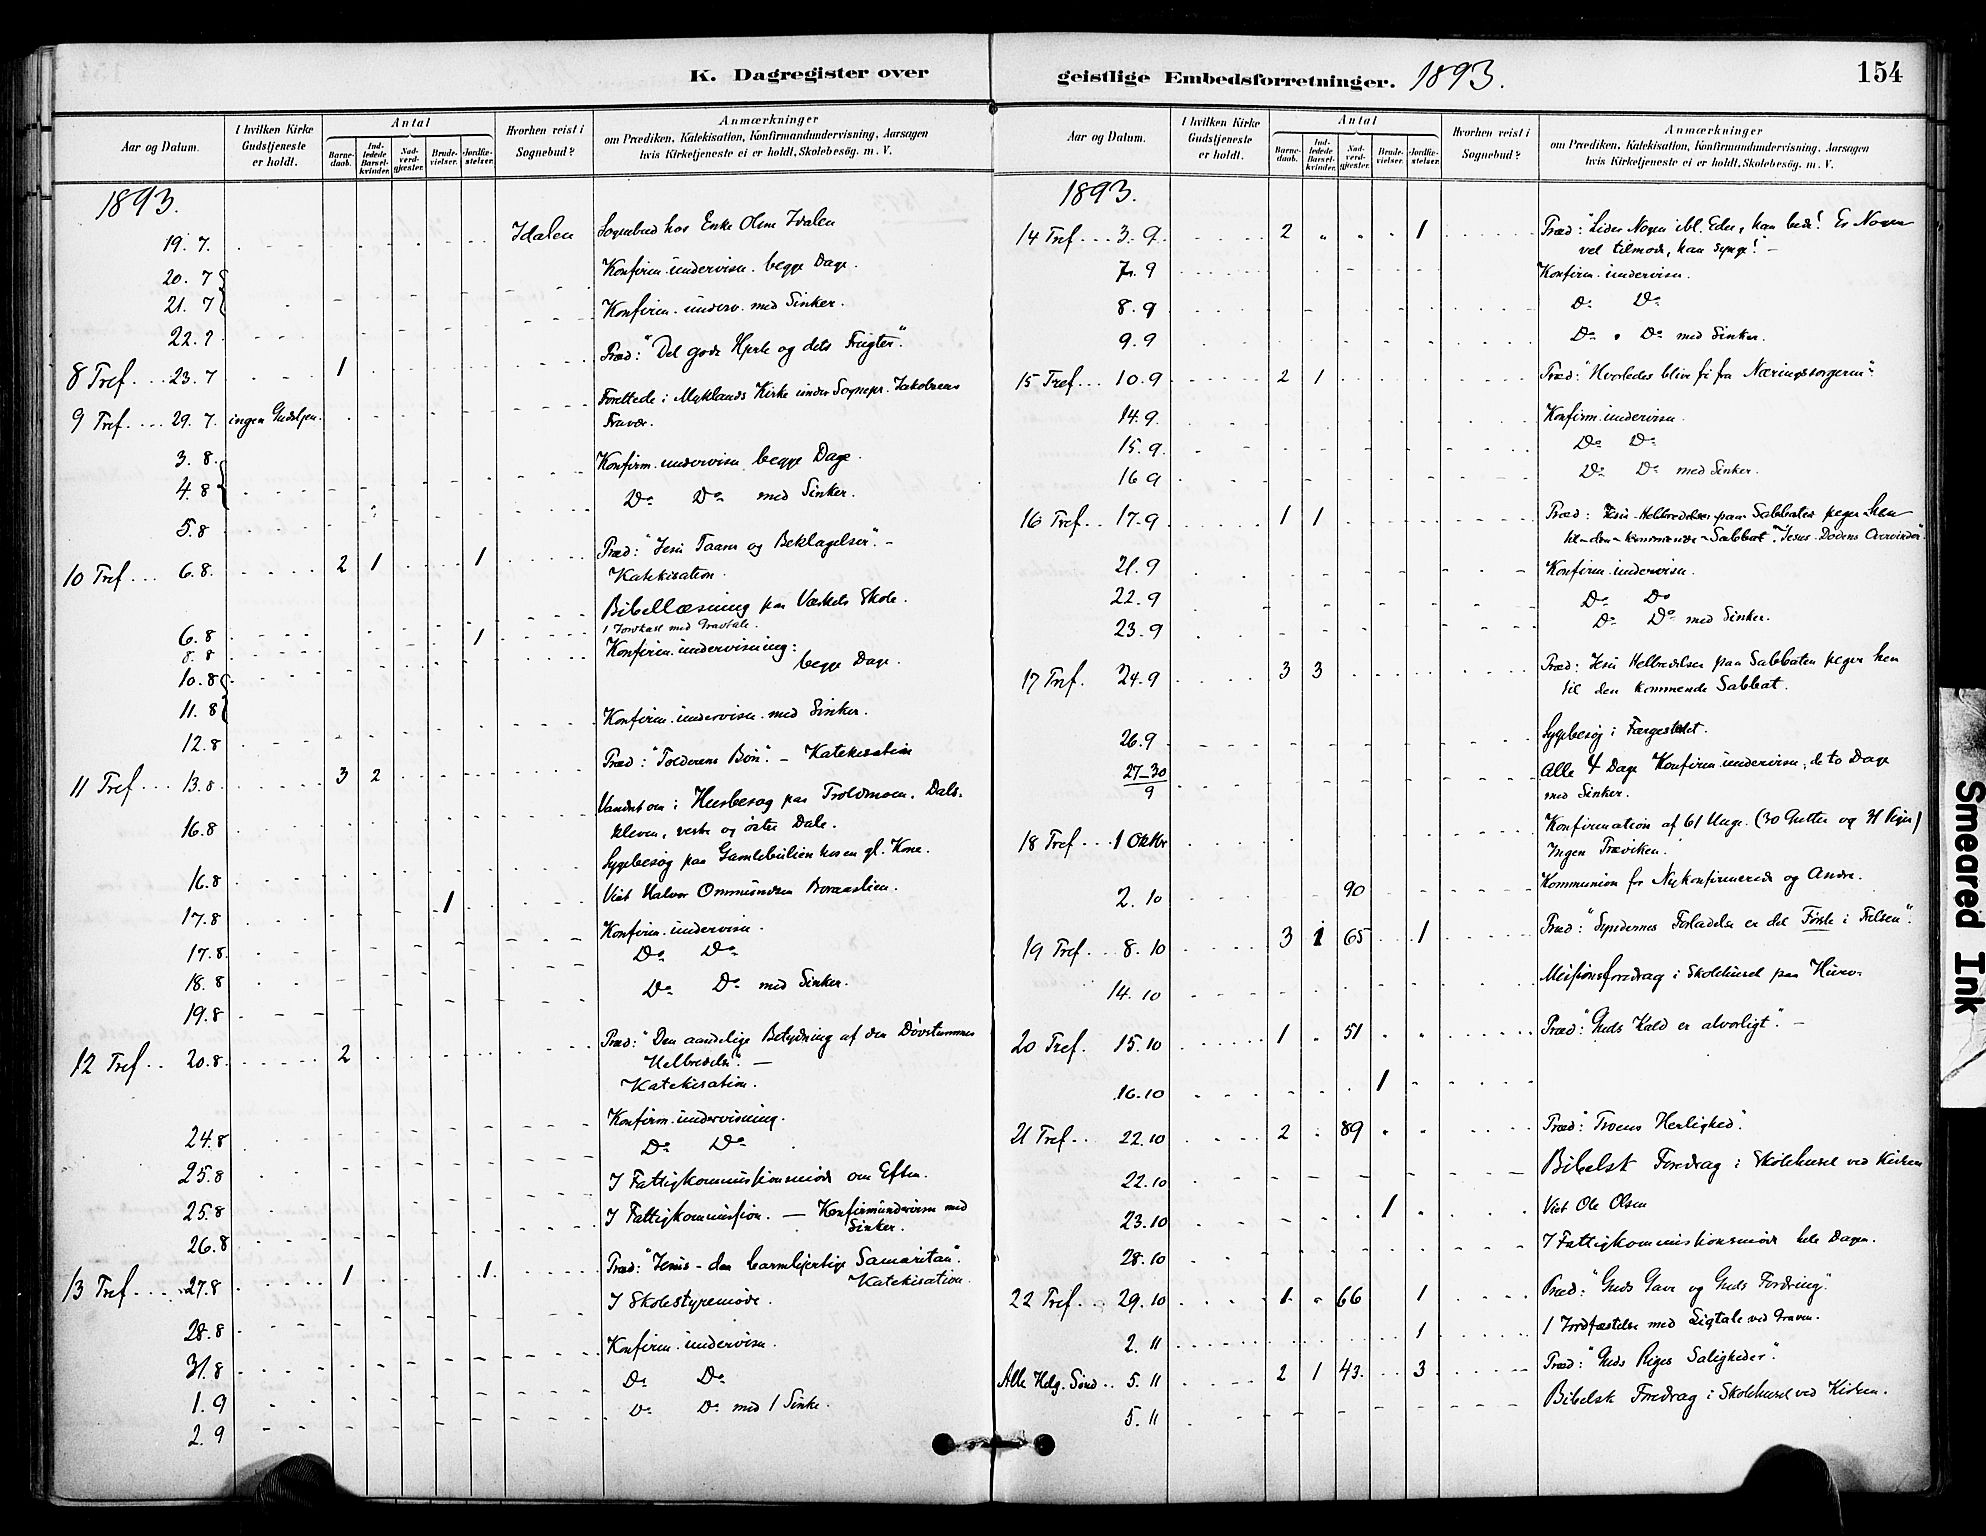 K. Dagregister over
Aar og Datum.
I hvilken Kirke Gudstjeneste er holdt.
Antal
Barnedaab.
Indledede Barselkvinder.
Nadverdgjester.
Brudevielser.
Jordfæstelser.
Hvorhen reist i Sognebud?
Anmærkninger
om Prædiken, Katekisation, Konfirmandundervisning, Aarsagen
hvis Kirketjeneste ei er holdt, Skolebesøg. m. V.
1893.
19. 7. Idalen Sognebud hos Enke Idalen
20. 7
21. 7 Konfirm. undervisn. begge Dage.
22. 7 Konfirm. underv. med Sinker.
8 Tref. 23. 7 1 Præd: "Det gode Hjerte og dets Frugter".
9 Tref. 29. 7. ingen Gudstjen. Forrettede i Myklands Kirke under Sognepr. Jakobsens
Fravær.
3. 8.
4. 8 Konfirm. undervisn. begge Dage.
5. 8 Do Do med Sinker.
10 Tref. 6. 8. 2 1 1 Præd: "Jesu Taarer og Beklagelser". -
Katekisation.
6. 8 Bibellæsning paa Skole.
8. 8 1 1 Jordkast med Gravtale.
10. 8 Konfirm. undervisning:
11. 8 begge Dage.
12. 8 Konfirm. undervisn. med Sinker.
11 Tref. 13. 8 3 2 Præd: "Tolderens Bøn". - Katekisation
16. 8 Vandret om i Husbesøg paa Troldmoen, Dals-
kleven, vestre og østre Dale.
16. 8 Sygebesøg paa hos en gl. Kone.
17. 8 1 Viet Halvor Ommundsen
17. 8. Konfirm. undervisn.
18. 8 Do Do
19. 8 Do Do med Sinker.
12 Tref. 20. 8. 2 Præd: "Den aandelige Betydning af den Døvstummes
Helbredelse". -
Katekisation.
24. 8 Konfirm. undervisning.
25. 8 Do Do
25. 8 I Fattigkommissionsmøde om Eften.
26. 8 I Fattigkommission. - Konfirmundervisn med
Sinker.
13 Tref. 27. 8 1 1 Præd: "Jesus - den barmhjertige Samaritan".
Katekisation.
28. 8 I Skolestyremøde.
31. 8 Konfirm. undervisn.
1. 9 Do Do
2. 9 Do Do med 1 Sinke.
geistlige Embedsforretninger. 1893.
154
Aar og Datum.
I hvilken Kirke Gudstjeneste er holdt.
Antal
Barnedaab.
Indledede Barselkvinder.
Nadverdgjester.
Brudevielser.
Jordfæstelser.
Hvorhen reist i Sognebud?
Anmærkninger
om Prædiken, Katekisation, Konfirmandundervisning, Aarsagen
hvis Kirketjeneste ei er holdt, Skolebesøg. m. V.
1893.
14 Tref. 3. 9. 2 1 Præd: "Lider Nogen ibl. Eder, han bede! Er Nogen
vel tilmode, han synge!" -
7. 9 Konfirm. undervisn.
8. 9 Do Do
9. 9 Do Do med Sinker.
15 Tref. 10. 9 2 1 Præd: "Hvorledes blive fri fra Næringssorgerne".
14. 9. Konfirm. undervisn.
15. 9 Do Do
16 9 Do Do med Sinker.
16 Tref. 17. 9 1 1 Præd: Jesu Helbredelser paa Sabbaten peger hen
til den kommende Sabbat. "Jesus Dødens Overvinder"
21. 9 Konfirm. undervisn.
22. 9 Do Do
23. 9 Do Do med Sinker.
17 Tref. 24. 9 3 3 Præd: Jesu Helbredelser paa Sabbaten peger hen
til den kommende Sabbat.
26. 9 Sygebesøg i Færgestedet.
27-30
9 Alle 4 Dage Konfirm. undervisn; de to Dage
med Sinker.
18 Tref. 1 Oktbr Konfirmation af 61 Unge. (30 Gutter og 31 Piger)
Ingen Præviken.
2. 10 90 Kommunion for Nykonfirmerede og Andre.
19 Tref. 8. 10 3 1 65 1 Præd: "Syndernes Forladelse er det Første i Frelsen".
14. 10 Missionsforedrag i Skolehuset paa
20 Tref. 15. 10 1 51 Præd: "Guds Kald er alvorligt". -
16. 10 1
21 Tref. 22. 10 2 89 Præd: "Troens Herlighed".
22. 10 Bibelsk Foredrag i Skolehuset ved Kirken
23. 10 1 Viet Ole Olsen
28. 10 I Fattigkommissionsmøde hele Dagen.
22 Tref. 29. 10 1 66 1 Præd: "Guds Gave og Guds Fordring".
2. 11 1 1 Jordfæstelse med Ligtale ved Graven.
Alle Helg. Sønd. 5. 11 2 1 43. 3 Præd: "Guds Riges Saligheder".
5. 11 Bibelsk Foredrag i Skolehuset ved Kirken.
Smeared Ink